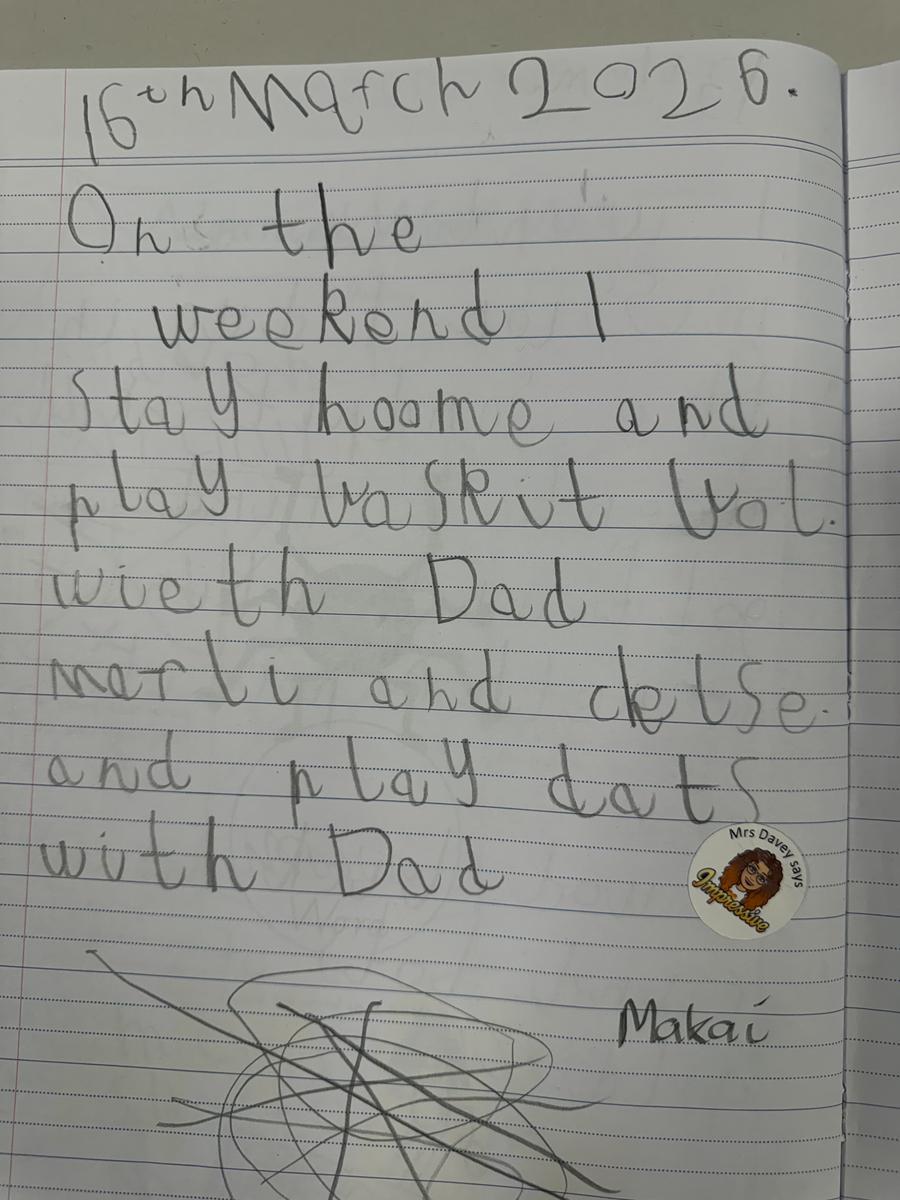 16th March 2026.
On the
weekend I
stay hoome and
play baskit bol.
wieth Dad
marli and cletse.
and play dats
with Dad
Mrs Davey says
Impressive
Makai